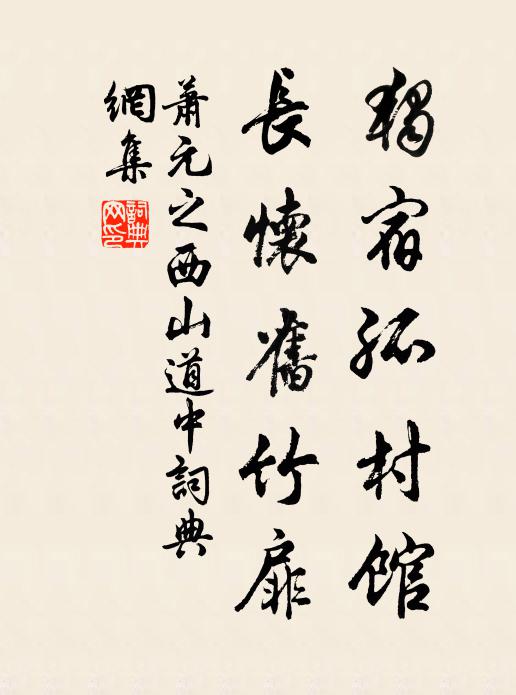 獨宿孤村館
長懷舊竹扉
蕭元之西山道中詞典
網集
詞典網印